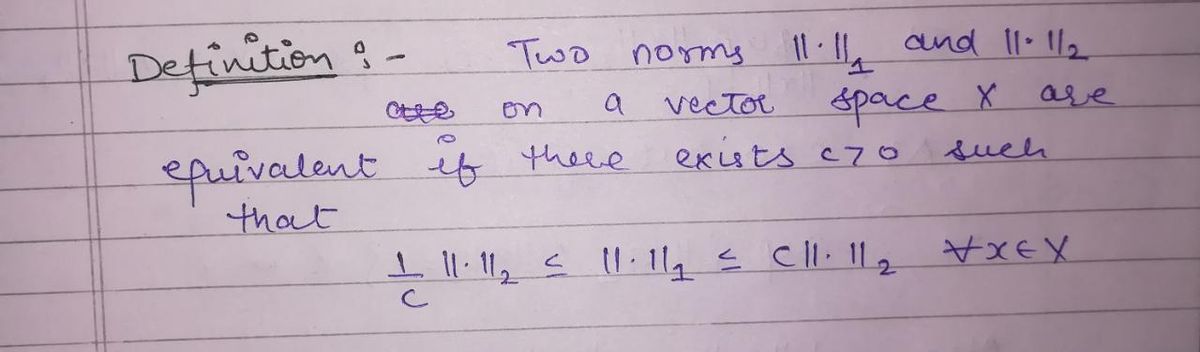 Definition :- Two norms ||·||₁ and ||·||₂
on a vector space X are
equivalent if there exists c>0 such
that
1/C ||·||₂ ≤ ||·||₁ ≤ C||·||₂ ∀x∈X